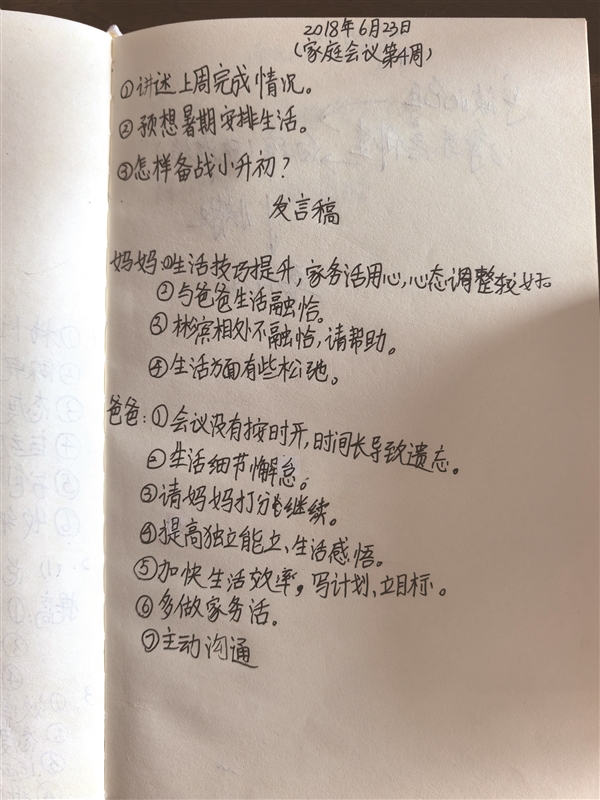 2018年6月23日
(家庭会议第4周)
①讲述上周完成情况。
②预想暑期安排生活。
③怎样备战小升初？
发言稿
妈妈:①生活技巧提升,家务活用心,心态调整较好。
②与爸爸生活融恰。
③彬滨相处不融恰,请帮助。
④生活方面有些松弛。
爸爸:①会议没有按时开,时间长导致遗态。
②生活细节懈怠。
③请妈妈打分继续。
④提高独立能立、生活感悟。
⑤加快生活效率,写计划、立目标。
⑥多做家务活。
⑦主动沟通